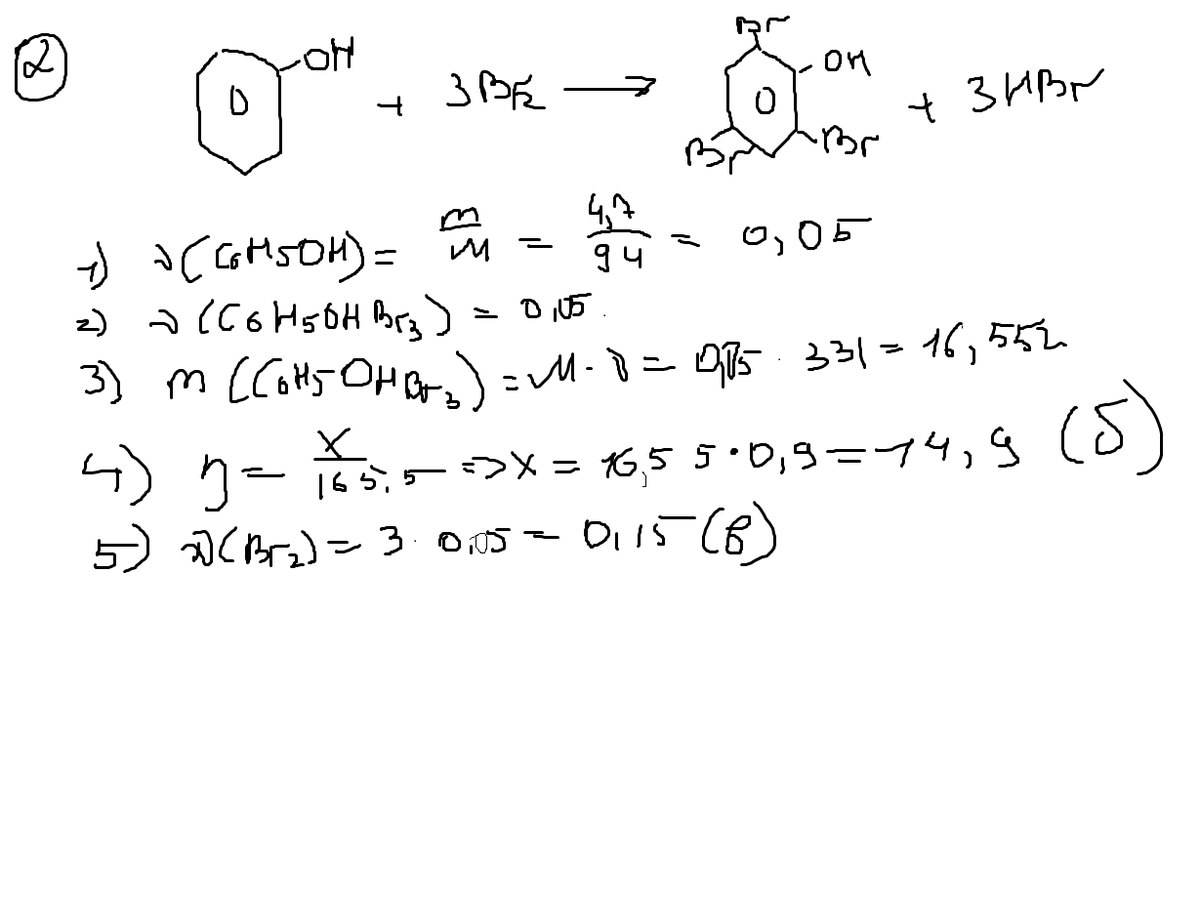 2
OH + 3Br2 → Br OH Br Br + 3HBr
1) ν(C6H5OH) = m/M = 4,7/94 = 0,05
2) ν(C6H5OHBr3) = 0,05.
3) m(C6H5OHBr3) = M·ν = 0,05 · 331 = 16,55г
4) η = x/165,5 => x = 16,55·0,9 = 14,9 (б)
5) ν(Br2) = 3·0,05 = 0,15 (в)